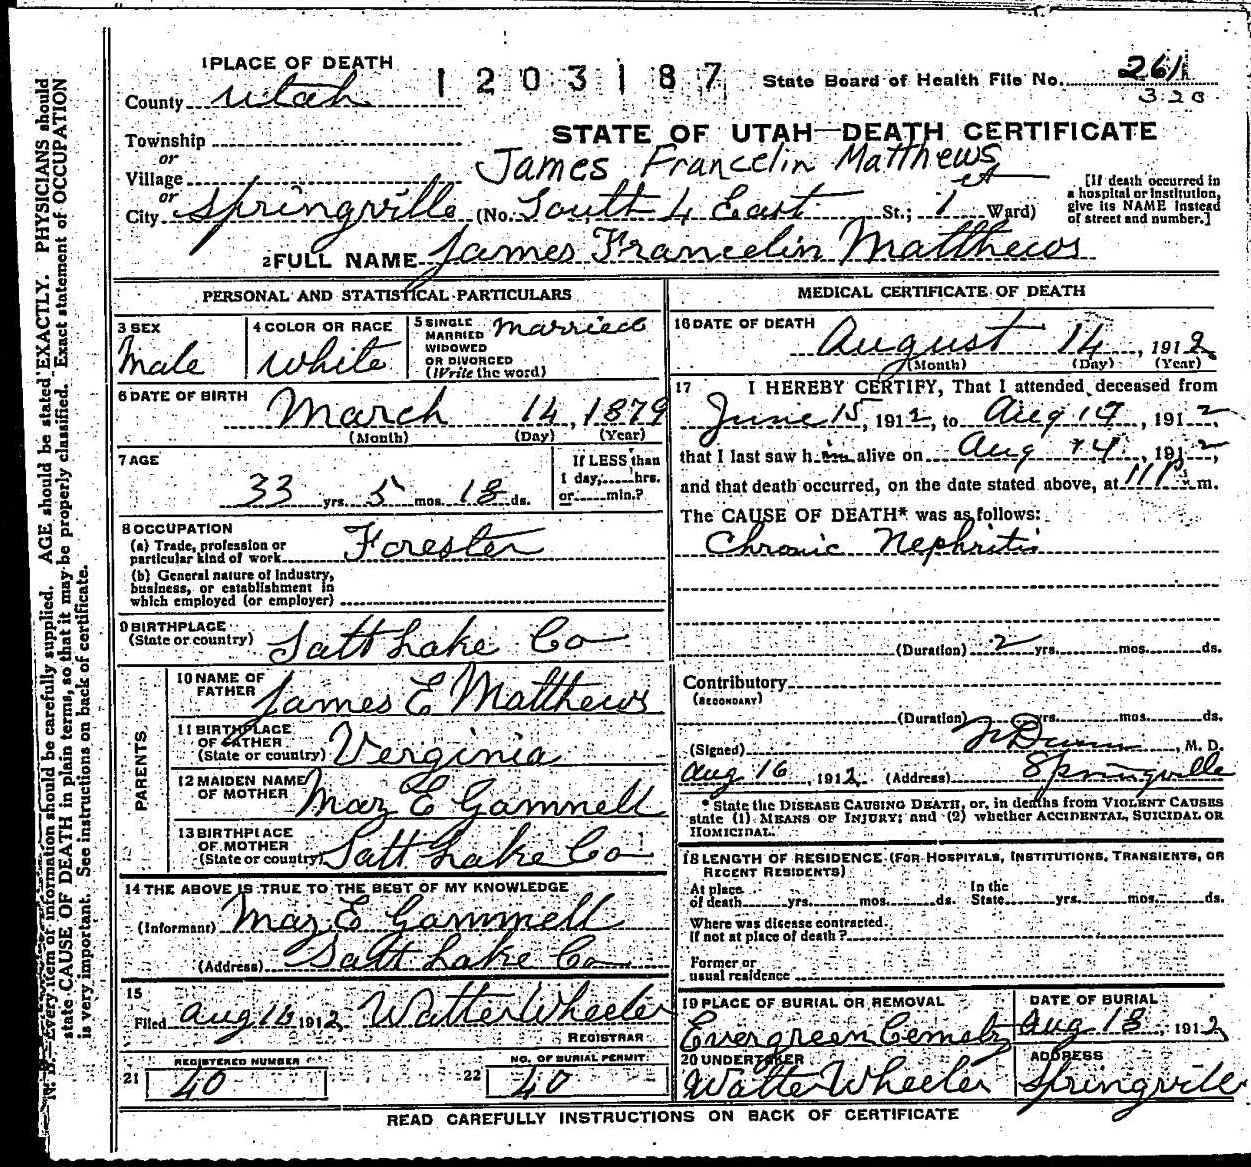 1 PLACE OF DEATH
1203187
State Board of Health File No. 261
320
County Utah
STATE OF UTAH—DEATH CERTIFICATE
Township
or
James Francelin Matthews
Village
or
City Springville (No. South 4 East St.; 1 Ward)
[If death occurred in
a hospital or institution,
give its NAME instead
of street and number.]
2 FULL NAME James Francelin Matthews
PERSONAL AND STATISTICAL PARTICULARS
3 SEX
Male
4 COLOR OR RACE
White
5 SINGLE
MARRIED
WIDOWED
OR DIVORCED
(Write the word)
Married
6 DATE OF BIRTH
March 14, 1879
(Month) (Day) (Year)
7 AGE
33 yrs. 5 mos. 18 ds.
If LESS than
1 day, hrs.
or min.?
8 OCCUPATION
(a) Trade, profession or
particular kind of work Forester
(b) General nature of industry,
business, or establishment in
which employed (or employer)
9 BIRTHPLACE
(State or country) Salt Lake Co
PARENTS
10 NAME OF
FATHER James E Matthews
11 BIRTHPLACE
OF FATHER
(State or country) Verginia
12 MAIDEN NAME
OF MOTHER Mary E Gammell
13 BIRTHPLACE
OF MOTHER
(State or country) Salt Lake Co
14 THE ABOVE IS TRUE TO THE BEST OF MY KNOWLEDGE
(Informant) Mary E Gammell
(Address) Salt Lake Co
15
Filed Aug 16 1912 Walter Wheeler
REGISTRAR
REGISTERED NUMBER
21 40
NO. OF BURIAL PERMIT
22 40
MEDICAL CERTIFICATE OF DEATH
16 DATE OF DEATH
August 14, 1912
(Month) (Day) (Year)
17 I HEREBY CERTIFY, That I attended deceased from
June 15, 1912, to Aug 14, 1912,
that I last saw him alive on Aug 14, 1912,
and that death occurred, on the date stated above, at 11 P m.
The CAUSE OF DEATH* was as follows:
Chronic Nephritis
(Duration) 2 yrs. mos. ds.
Contributory
(SECONDARY)
(Duration) yrs. mos. ds.
(Signed) Dunn, M. D.
Aug 16, 1912 (Address) Springville
*State the DISEASE CAUSING DEATH, or, in deaths from VIOLENT CAUSES
state (1) MEANS OF INJURY; and (2) whether ACCIDENTAL, SUICIDAL OR
HOMICIDAL.
18 LENGTH OF RESIDENCE (FOR HOSPITALS, INSTITUTIONS, TRANSIENTS, OR
RECENT RESIDENTS)
At place
of death yrs. mos. ds.
In the
State yrs. mos. ds.
Where was disease contracted.
If not at place of death?
Former or
usual residence
19 PLACE OF BURIAL OR REMOVAL
Evergreen Cemety
DATE OF BURIAL
Aug 18, 1912
20 UNDERTAKER
Walter Wheeler
ADDRESS
Springville
READ CAREFULLY INSTRUCTIONS ON BACK OF CERTIFICATE
N. B.—Every item of information should be carefully supplied. AGE should be stated EXACTLY. PHYSICIANS should
state CAUSE OF DEATH in plain terms, so that it may be properly classified. Exact statement of OCCUPATION
is very important. See instructions on back of certificate.